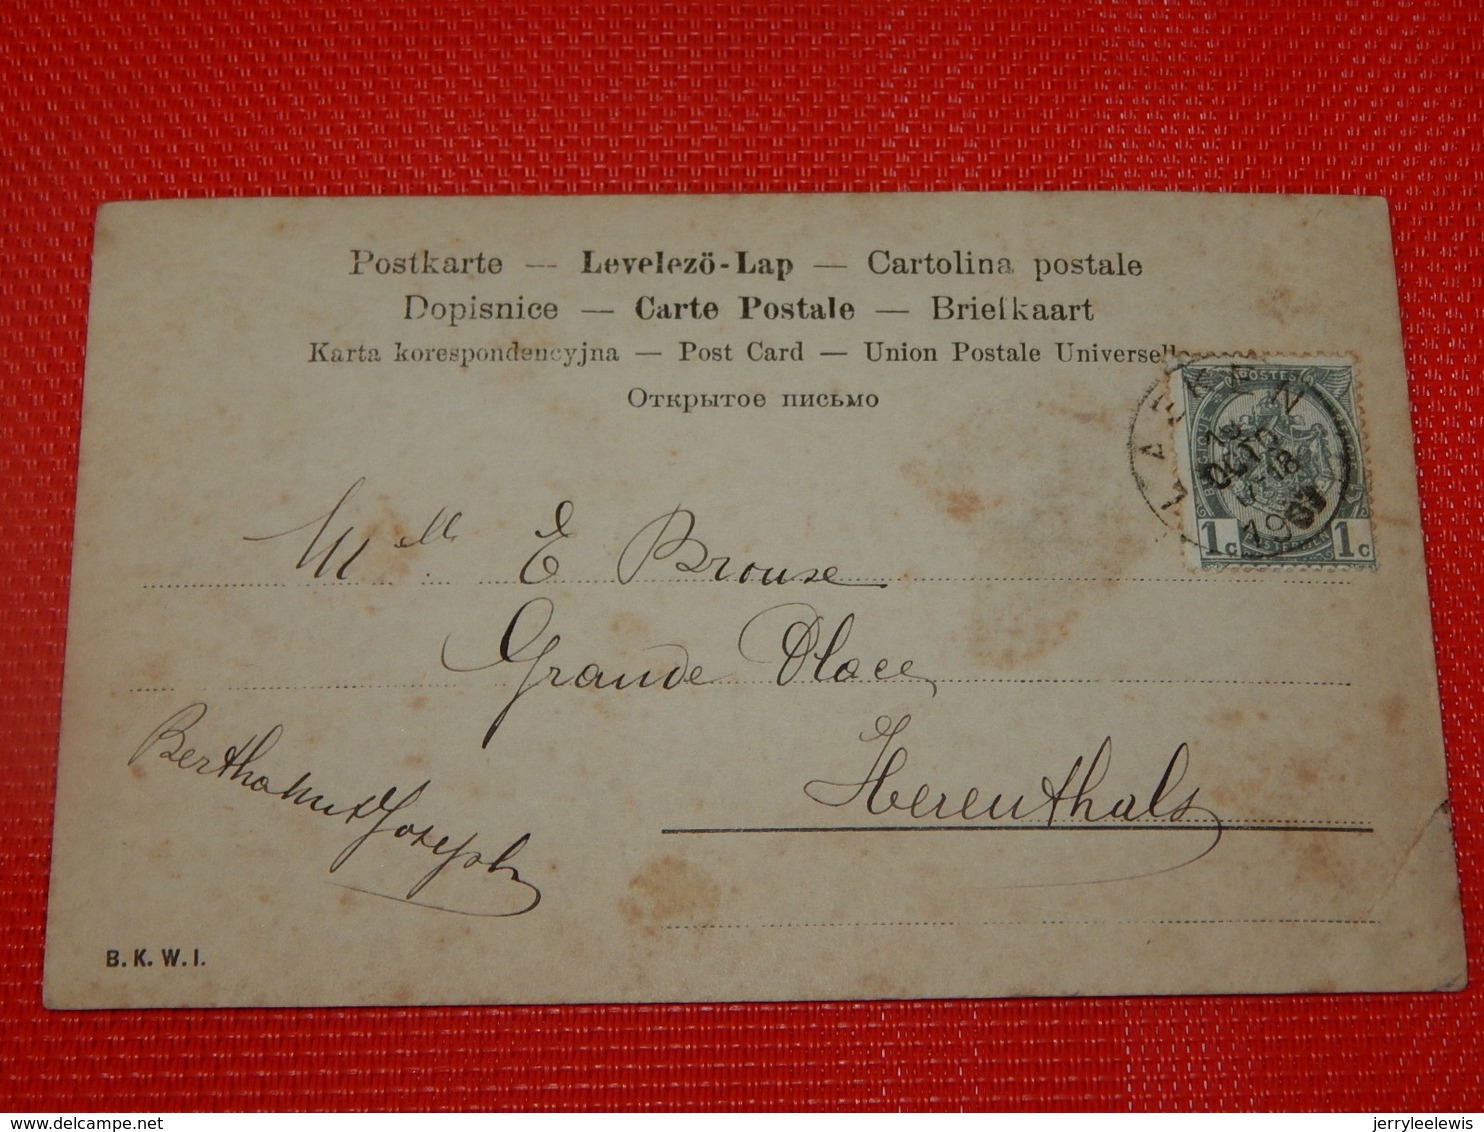 Postkarte — Levelező-Lap — Cartolina postale
Dopisnice — Carte Postale — Briefkaart
Karta korespondencyjna — Post Card — Union Postale Universelle
Открытое письмо
LAEKEN
OCTO
POSTES
BELGIQUE
1c 1c
Mlle E Brouse
Grande Place
Herenthals
Joseph
B. K. W. I.
jerryleelewis